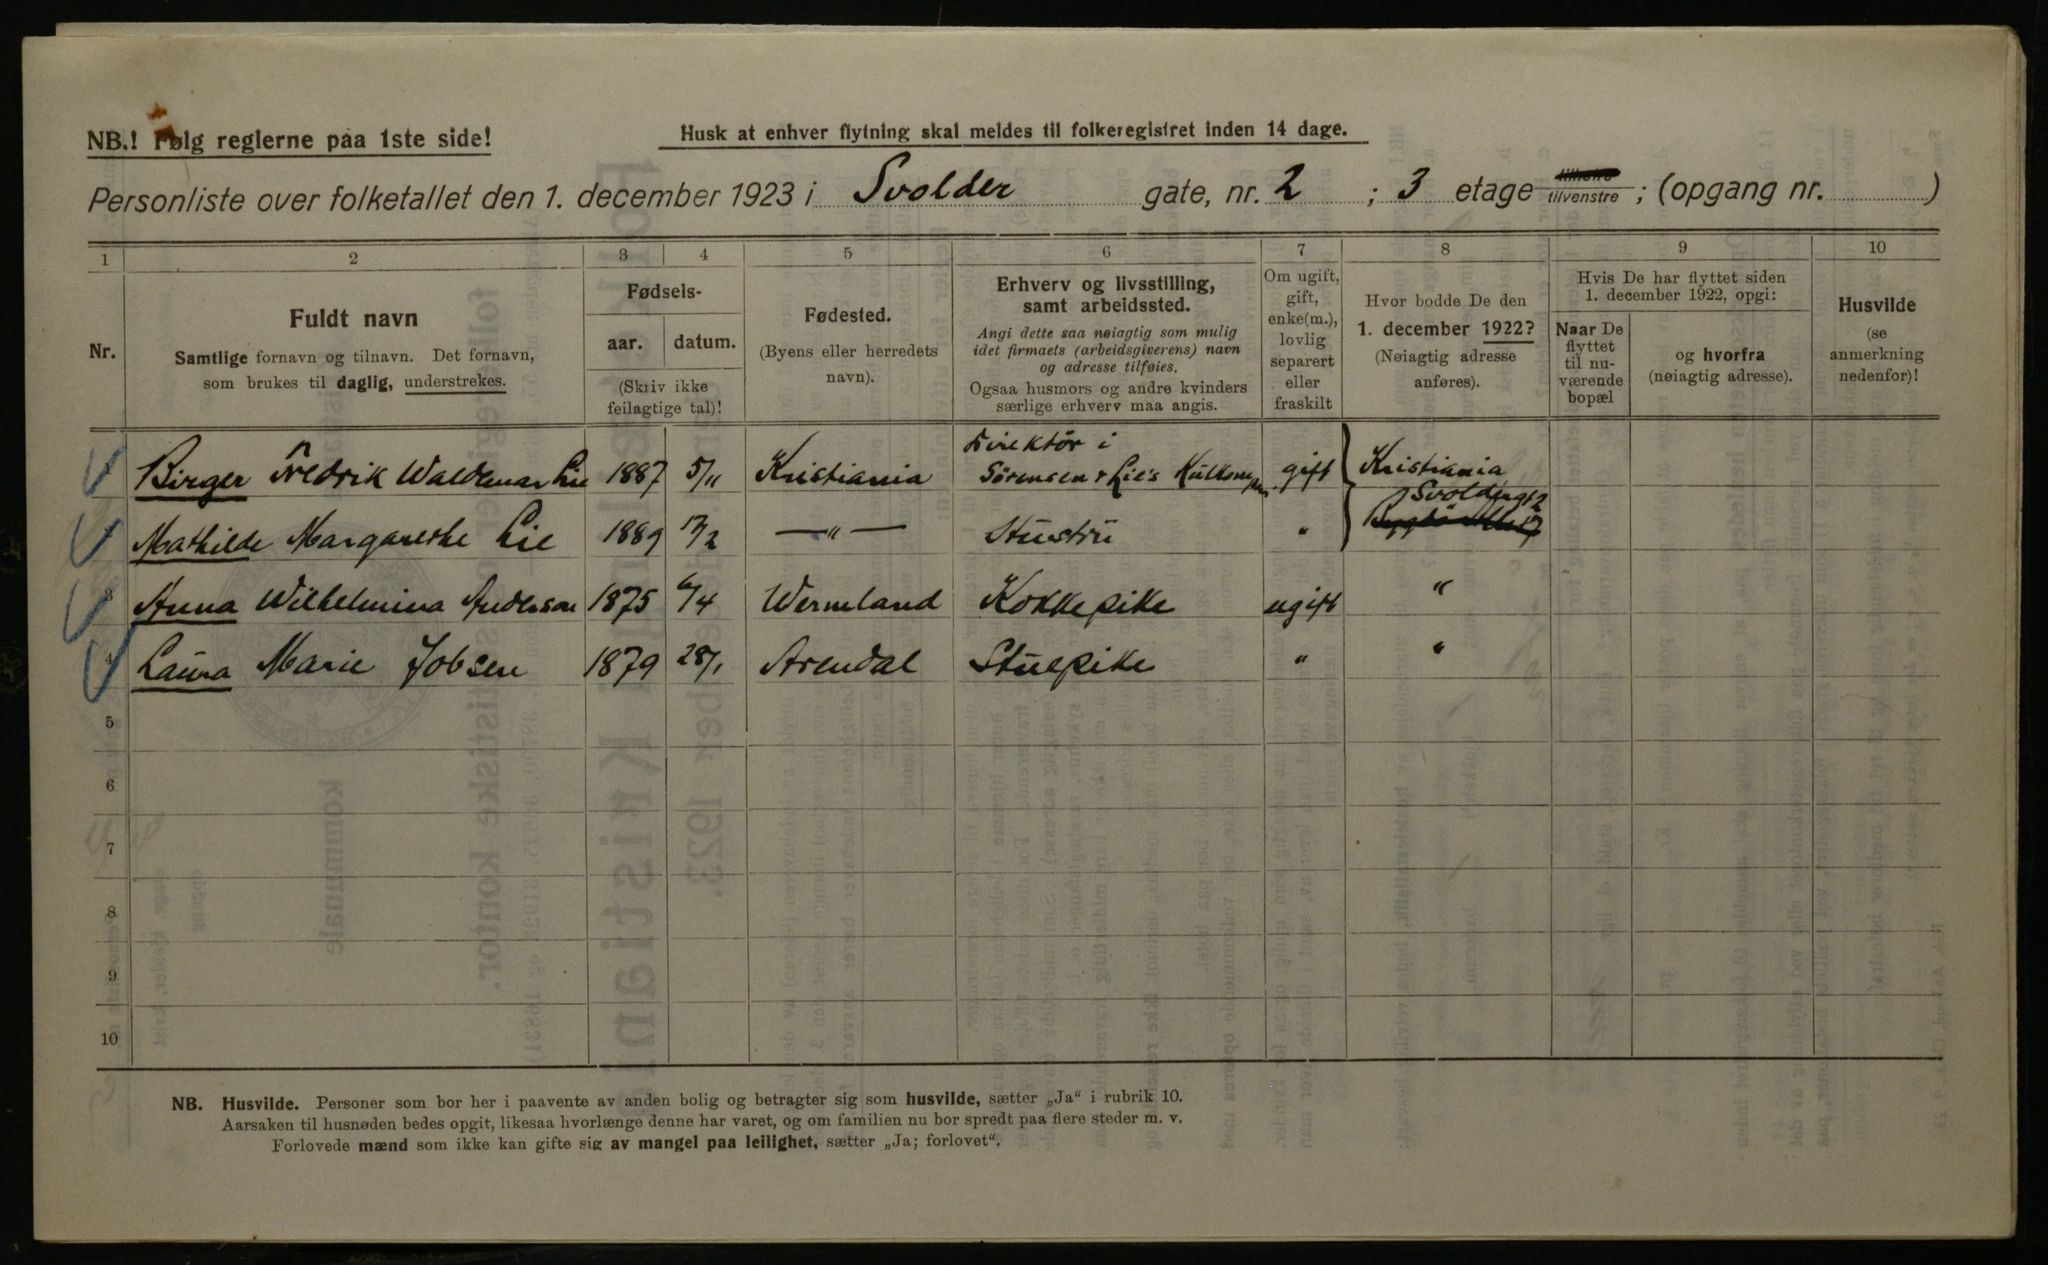 NB.! Følg reglerne paa 1ste side!
Husk at enhver flytning skal meldes til folkeregistret inden 14 dage.
Personliste over folketallet den 1. december 1923 i Svolder gate, nr. 2 ; 3 etage tilhøire tilvenstre ; (opgang nr. )
1 2 3 4 5 6 7 8 9 10
Nr.
Fuldt navn
Samtlige fornavn og tilnavn. Det fornavn,
som brukes til daglig, understrekes.
Fødsels-
aar. datum.
(Skriv ikke
feilagtige tal)!
Fødested.
(Byens eller herredets
navn).
Erhverv og livsstilling,
samt arbeidssted.
Angi dette saa nøiagtig som mulig
idet firmaets (arbeidsgiverens) navn
og adresse tilføies.
Ogsaa husmors og andre kvinders
særlige erhverv maa angis.
Om ugift,
gift,
enke(m.),
lovlig
separert
eller
fraskilt
Hvor bodde De den
1. december 1922?
(Nøiagtig adresse
anføres).
Hvis De har flyttet siden
1. december 1922, opgi:
Naar De
flyttet
til nu-
værende
bopæl
og hvorfra
(nøiagtig adresse).
Husvilde
(se
anmerkning
nedenfor)!
Direktör i
Birger Fredrik Waldemar Lie 1887 5/11 Kristiania Sörensen & Lie's Kulkomp. gift Kristiania
Svoldergt 2
Mathilde Margarethe Lie 1889 17/2 —„— Hustru „
3 Anna Wilhelmina Anderson 1875 6/4 Wermland Kokkepike ugift „
4 Laura Marie Jobsen 1879 28/1 Arendal Stuepike „ „
5
6
7
8
9
10
NB. Husvilde. Personer som bor her i paavente av anden bolig og betragter sig som husvilde, sætter „Ja“ i rubrik 10.
Aarsaken til husnøden bedes opgit, likesaa hvorlænge denne har varet, og om familien nu bor spredt paa flere steder m. v.
Forlovede mænd som ikke kan gifte sig av mangel paa leilighet, sætter „Ja; forlovet“.